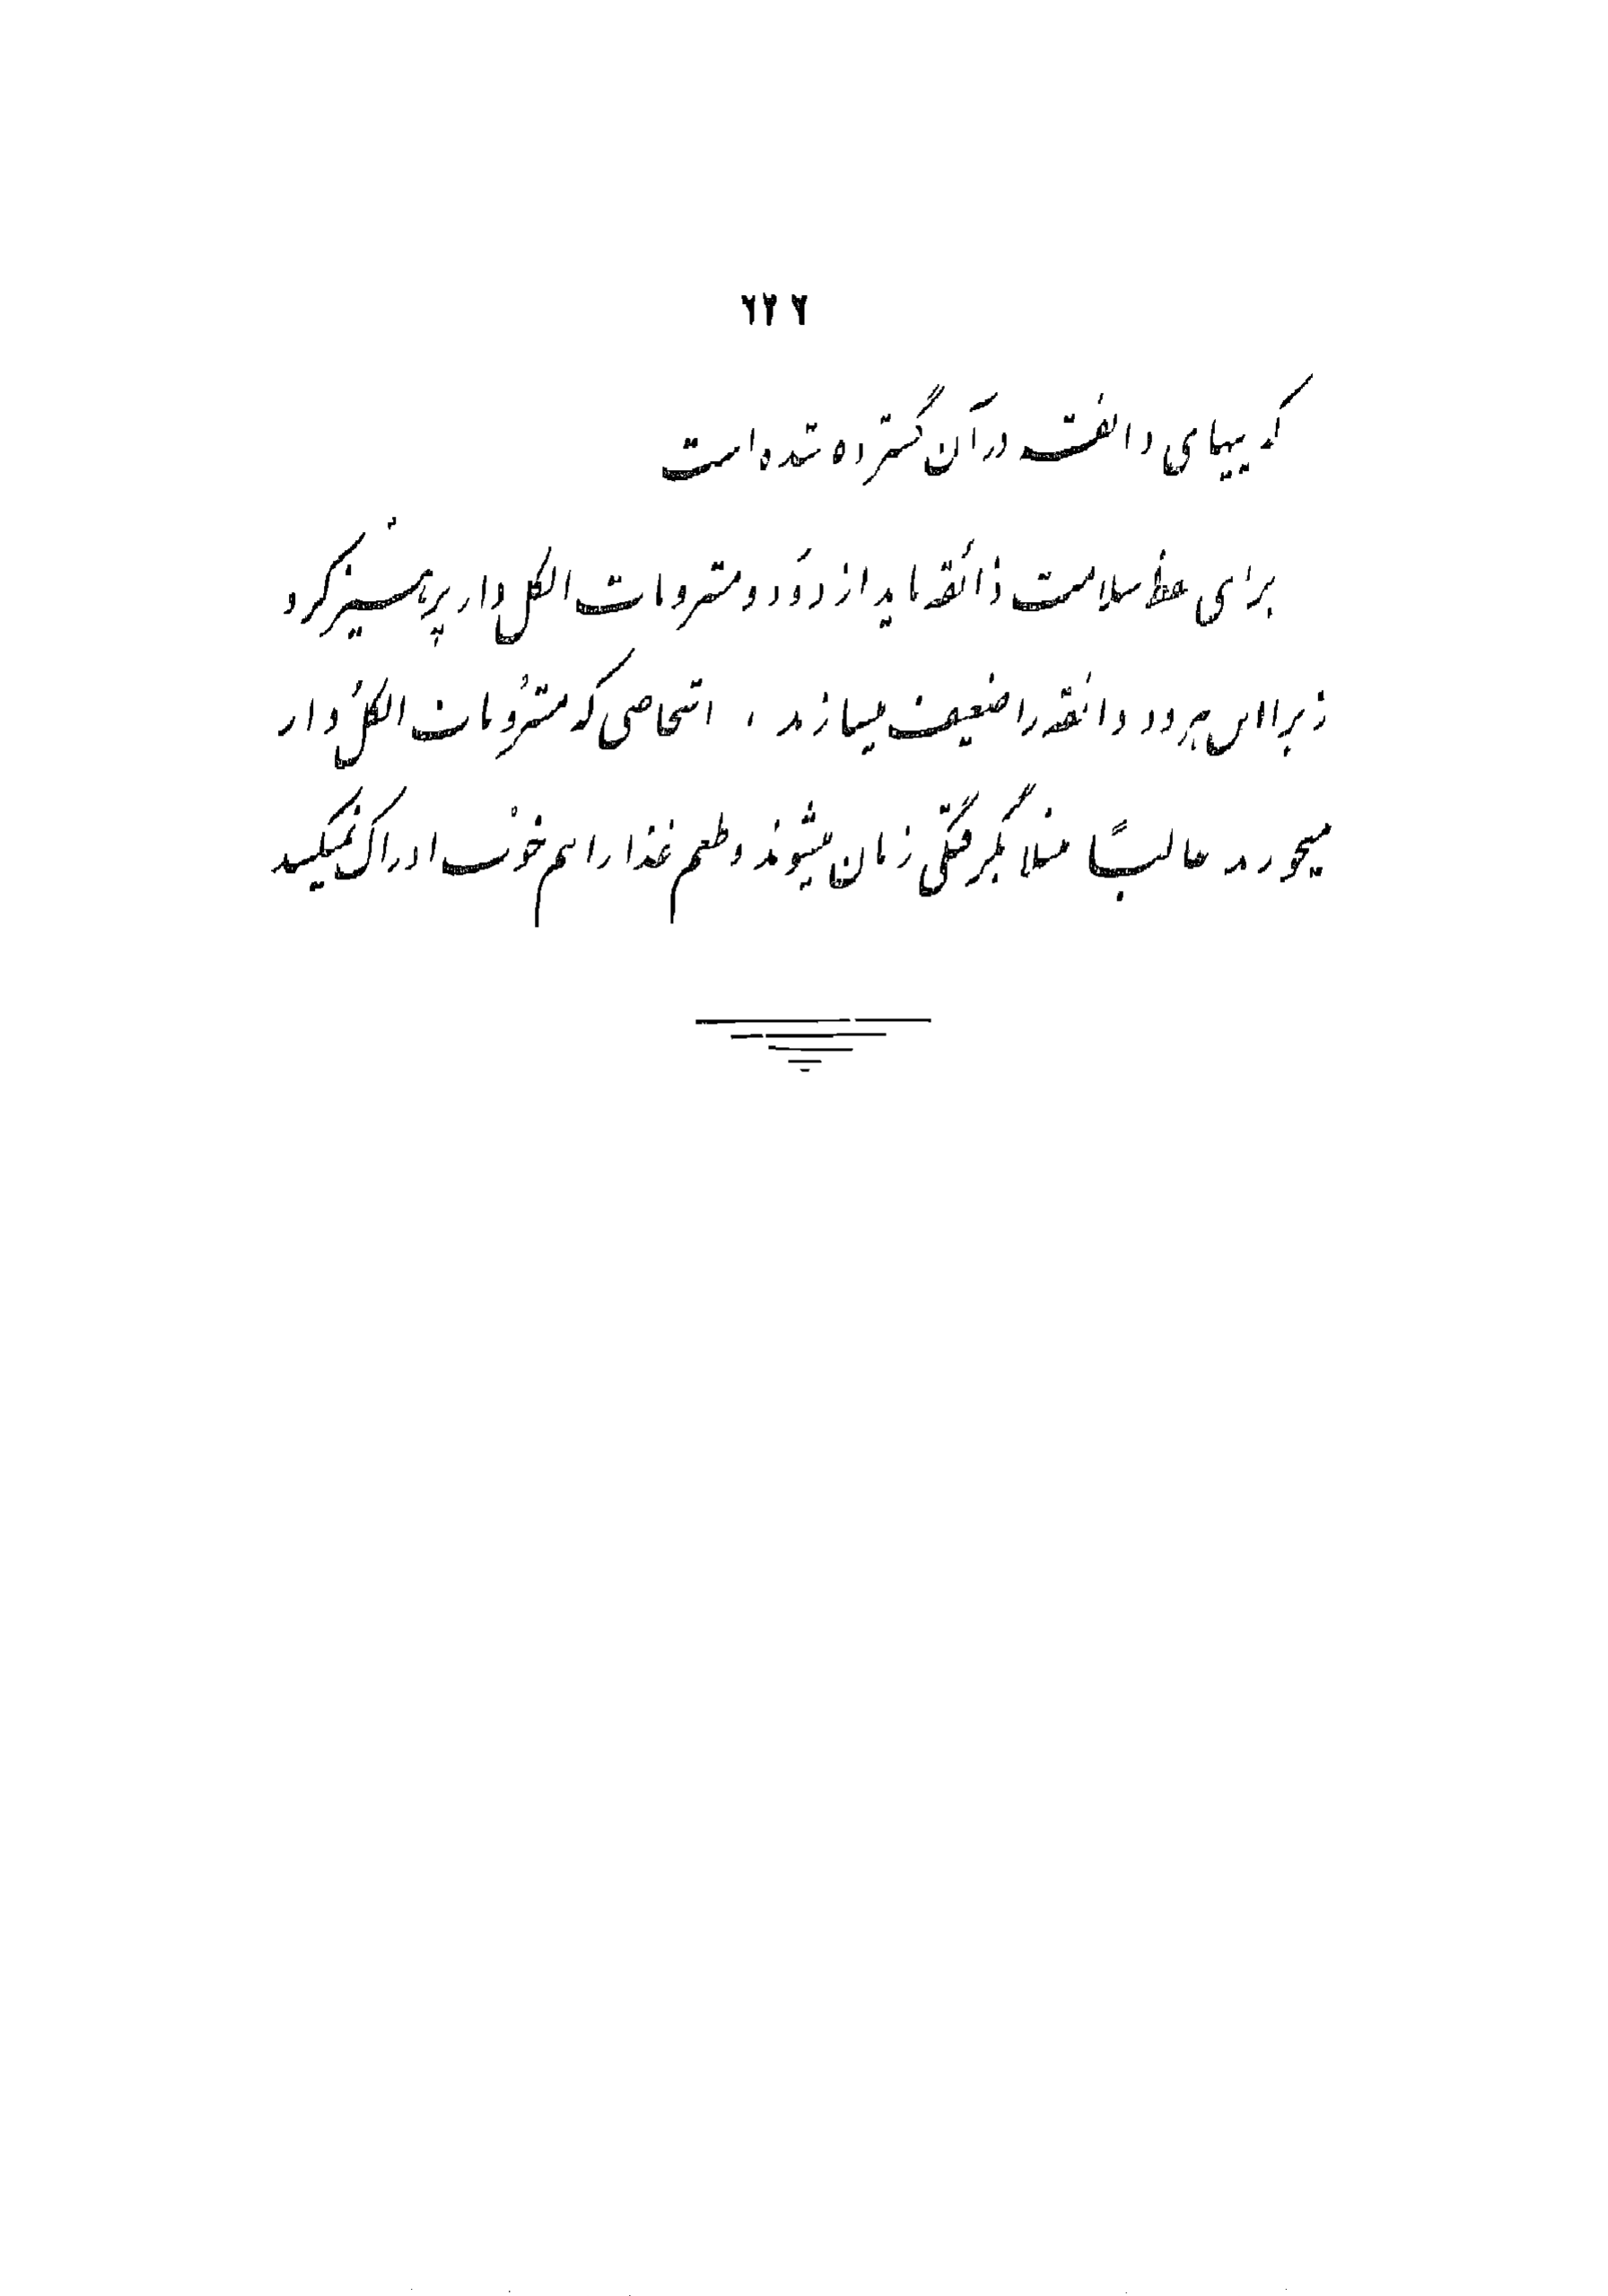 ۲۲۶
که پیهای ذائقت در آن گسترده شده است
برای حفظ سلامت ذائقه باید از دود و مشروبات الکل دار پرهیز کرد
زیرا این هر دو ذائقه را ضعیف میسازند ، اشخاصی که مشروبات الکل دار
میخورند غالبًا مبتلا بگرفتگی زبان میشوند و طعم غذا را هم خوب ادراک نمیکنند